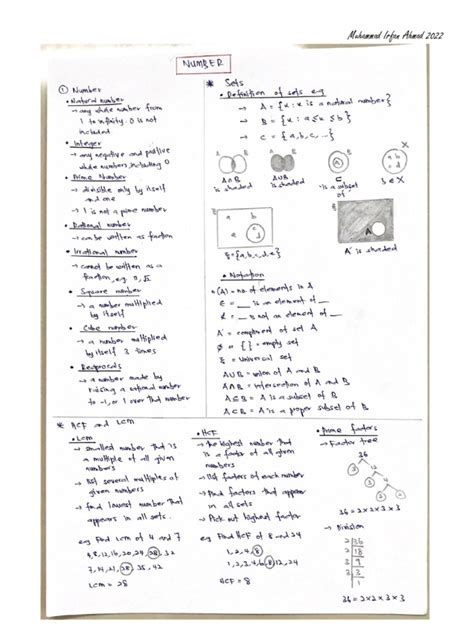 Muhammad Irfan Ahmad 2022
NUMBER
① Number
• Natural number
→ any whole number from
1 to infinity. 0 is not
included
• Integer
→ any negative and positive
whole numbers including 0
• Prime Number
→ divisible only by itself
and one
→ 1 is not a prime number
• Rational number
→ can be written as fraction
• Irrational number
→ cannot be written as a
fraction, e.g.
• Square number
→ a number multiplied
by itself
• Cube number
→ a number multiplied
by itself 3 times
• Reciprocals
→ a number made by
raising a rational number
to -1, or 1 over that number
* Sets
• Definition of sets e.g
→ A = {x : x is a natural number}
→ B = {x : a ≤ x ≤ b}
→ C = {a, b, c, ...}
A∩B
is shaded
A∪B
is shaded
⊂
is a subset
of
b ∈ X
ξ = {a, b, c, d, e}
A' is shaded
• Notation
n(A) = no of elements in A
∈ = __ is an element of __
∉ = __ is not an element of __
A' = complement of set A
∅ or { } = empty set
ξ = universal set
A∪B = union of A and B
A∩B = intersection of A and B
A⊆B = A is a subset of B
A⊂B = A is a proper subset of B
* HCF and LCM
• LCM
→ smallest number that is
a multiple of all given
numbers
→ list several multiples of
given numbers
→ find lowest number that
appears in all sets.
eg Find LCM of 4 and 7
4, 8, 12, 16, 20, 24, 28, 32
7, 14, 21, 28, 35, 42
LCM = 28
• HCF
→ the highest number that
is a factor of all given
numbers
→ list factors of each number
→ Find factors that appear
in all sets
→ Pick out highest factor
eg Find HCF of 8 and 24
1, 2, 4, 8
1, 2, 3, 4, 6, 8, 12, 24
HCF = 8
• Prime factors
→ Factor tree
36
36 = 2 × 2 × 3 × 3
→ Division
2 36
2 18
3 9
3 3
1
36 = 2 × 2 × 3 × 3